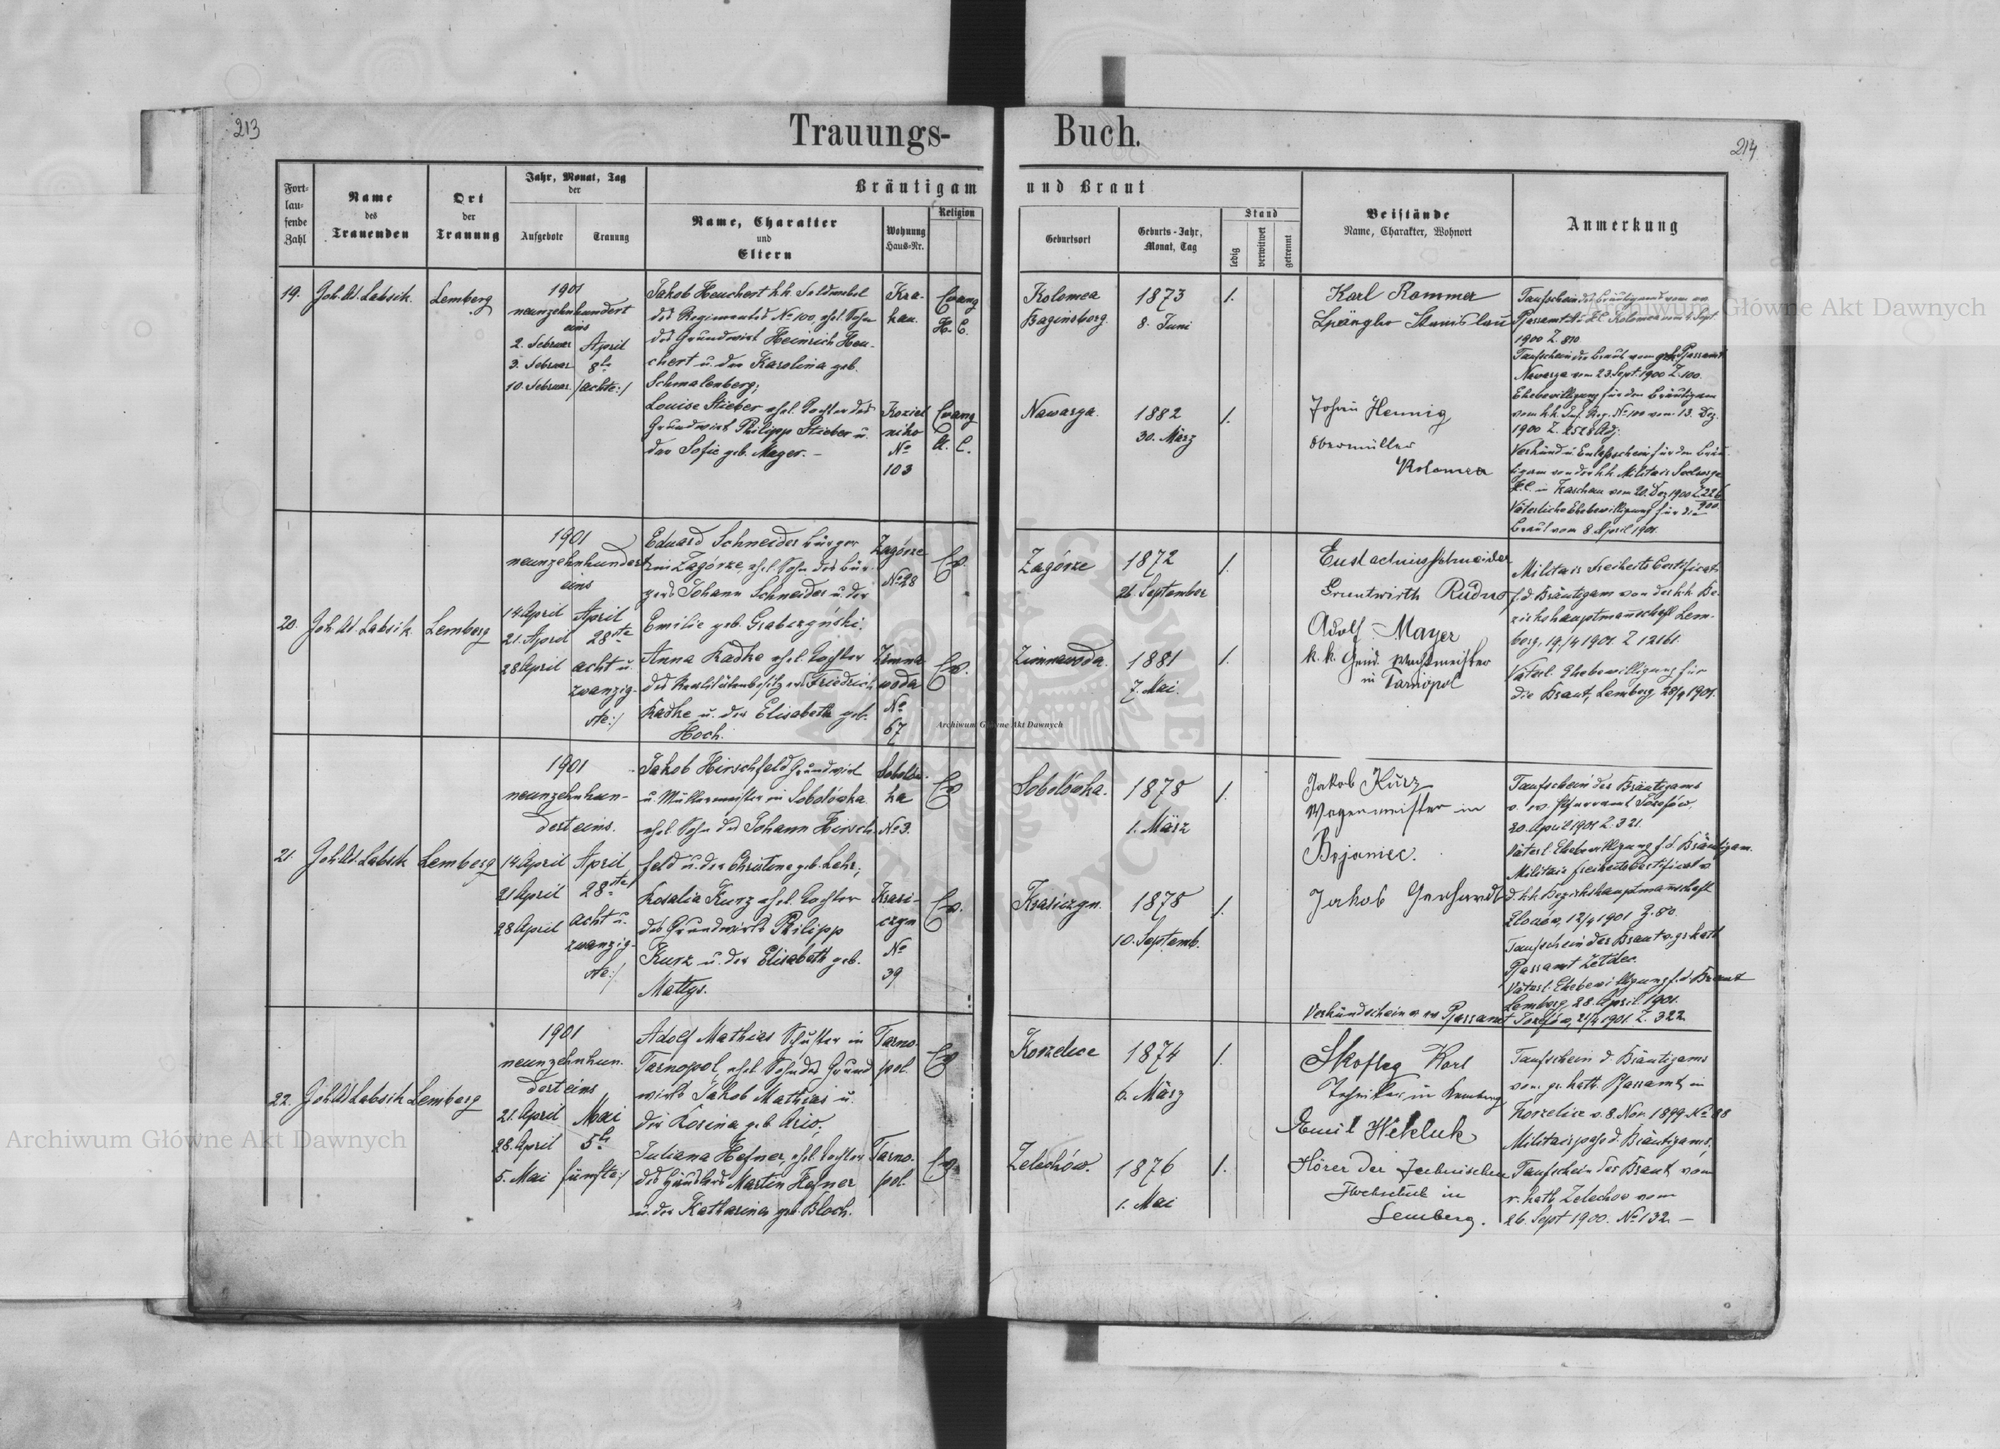 213
Trauungs-
Buch.
214
Fort-
lau-
fende
Zahl
Name
des
Trauenden
Ort
der
Trauung
Jahr, Monat, Tag
der
Aufgebote
Trauung
Bräutigam
und Braut
Name, Charakter
und
Eltern
Wohnung
Haus-Nr.
Religion
Geburtsort
Geburts-Jahr,
Monat, Tag
Stand
ledig
verwitwet
getrennt
Beistände
Name, Charakter, Wohnort
Anmerkung
19.
Joh. Ad. Labsik.
Lemberg
1901
neunzehnhundert
eins
2. Februar
3. Februar
10. Februar
April
8te
/achte:/
Jakob Heuchert k.k. Feldwebel
des Regimentes No 100, ehel. Sohn
des Grundwirt Heinrich Heu-
chert u. der Karolina geb.
Schmalenberg;
Louise Stieber ehel. Tochter des
Grundwirt Philipp Stieber u.
der Sofie geb. Mayer. –
Kra-
kau.
No
103
Evang
H. C.
Evang
A. C.
Kolomea
Baginsberg.
1873
8. Juni
1.
Nawarya.
1882
30. März
1.
Karl Rommer
Spängler Stanislau
Johann Hennig
Obermüller
Kolomea
Taufschein des Bräutigams vom ev.
Pfarramt A. u. H. C. Kolomea vom 4. Sept
1900 Z. 810
Taufschein der Braut vom Pfarramt
Nawarya vom 23. Sept. 1900 Z. 100.
Ehebewilligung für den Bräutigam
vom k.k. Inf. Reg. No 100 vom 13. Dez.
1900 Z.
Verkünd u. Entlaßschein für den Bräu-
tigam von der k.k. Militär Seelsorge
in Kaschau vom 20. Dez 1900 Z 226
900.
Väterliche Ehebewilligung für die
Braut vom 8 April 1901.
20.
Joh. Ad. Labsik
Lemberg
1901
neunzehnhundert
eins
14 April
21. April
28 April
April
28ste
acht u.
zwanzig-
ste:/
Eduard Schneider Bürger
in Zagórze, ehel. Sohn des Bür-
gers Johann Schneider u. der
Emilie geb. Grabczyński.
Anna Kadke ehel. Tochter
des Realitätenbesitzers Friedrich
Kadke u. der Elisabeth geb.
Hoch.
Zagórze
No 28
Zimna
woda
No
67
Ev.
Ev.
Zagórze
1872
26. September
1.
Zimnawoda.
1881
7. Mai.
1.
Eustachius Schneider
Grundwirth Rudno
Adolf Mayer
k. k. Gend. Wachtmeister
in Tarnopol
Militär Freiheits Certificat
f. d. Bräutigam von der k.k. Be-
zirkshauptmannschaft Lem-
berg, 19/4 1901 Z 12161.
Väterl. Ehebewilligung für
die Braut, Lemberg, 28/4 1901.
21.
Joh. Ad. Labsik
Lemberg
1901
neunzehnhun-
dert eins.
14 April
21 April
28 April
April
28ste
acht u.
zwanzig-
ste:/
Jakob Hirschfeld Grundwirt
u. Müllermeister in Sobolówka
ehel. Sohn des Johann Hirsch-
feld u. der Christine geb. Lehr;
Rosalia Kurz ehel. Tochter
des Grundwirts Philipp
Kurz u. der Elisabeth geb.
Mattys.
Sobolów-
ka
No 3.
Krasi-
czyn
No
39
Ev.
Ev.
Sobolówka.
1878
1. März
1.
Krasiczyn.
1878
10. Septemb.
1.
Jakob Kurz
Wagenmeister in
Jakob Gerhardt
Taufschein des Bräutigams
v. ev. Pfarramt Józefów.
20. April 1901 Z. 321.
Väterl. Ehebewilligung f. d. Bräutigam.
Militär freiheits Certificat v.
d. k.k. Bezirkshauptmannschaft
Złoczów, 12/4 1901 Z. 80.
Taufschein der Braut v. gr. kath
Pfarramt
Väterl. Ehebewilligung f. d. Braut
Lemberg, 28. April. 1901.
Verkündschein v. ev Pfarramt Józefów, 21/4 1901. Z. 322
22.
Joh. Ad. Labsik
Lemberg
1901
neunzehnhun-
dert eins
21. April
28. April
5. Mai
Mai
5te
fünfte:/
Adolf Mathias Schuster in
Tarnopol, ehel. Sohn des Grund
wirts Jakob Mathias u.
der Rosina geb. Ario.
Juliana Hefner, ehel. Tochter
des Händlers Martin Hefner
u. der Katharina geb. Bloch.
Tarno-
pol.
Tarno-
pol.
Ev
Ev
Korzelice
1874
6. März
1.
Zelechów.
1876
1. Mai
1.
Karl
Techniker in Lemberg
Emil Wekluk
Hörer der Technischen
Hochschule in
Lemberg.
Taufschein d. Bräutigams
vom gr. kath. Pfarramt in
Korzelice v. 8. Nov. 1899 No 88
Militärpass d. Bräutigams,
Taufschein der Braut vom
r. kath Zelechow vom
26. Sept 1900. No 132 –
Archiwum Główne Akt Dawnych
Archiwum Główne Akt Dawnych
Archiwum Główne Akt Dawnych